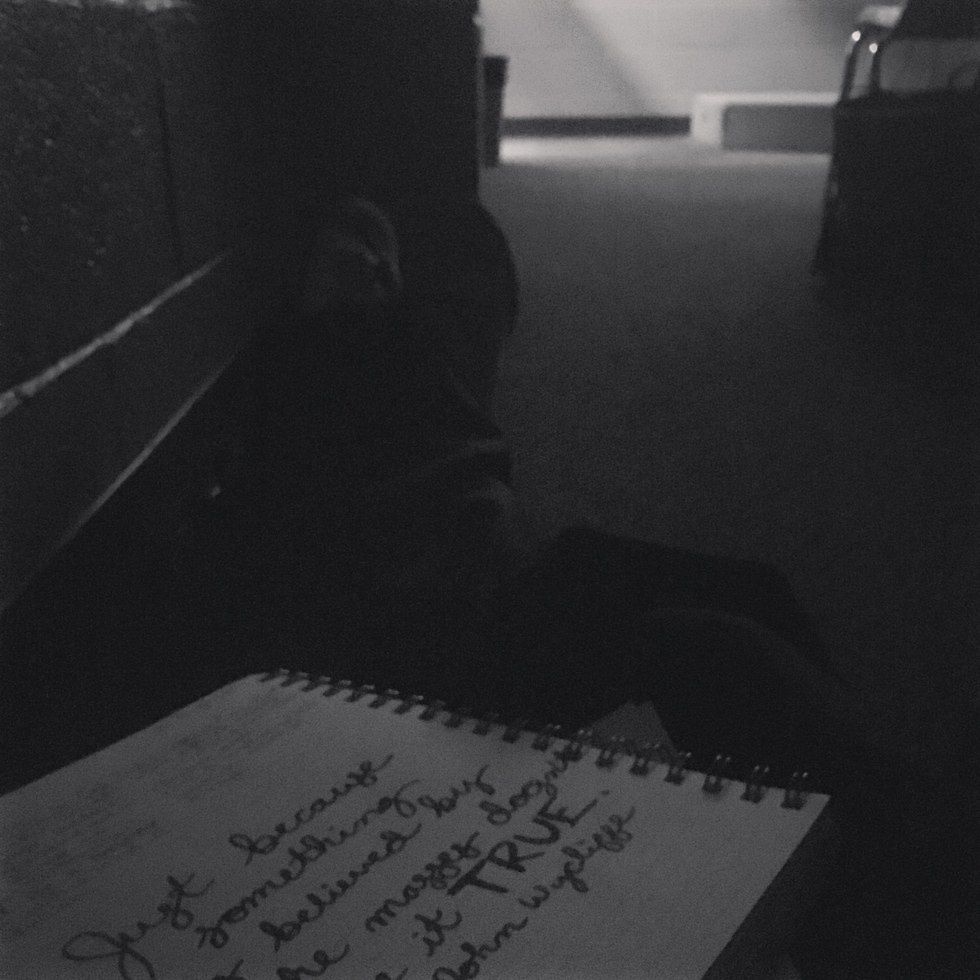 Just because
something
believed by
the masses doesnt
it TRUE.
John Wycliffe